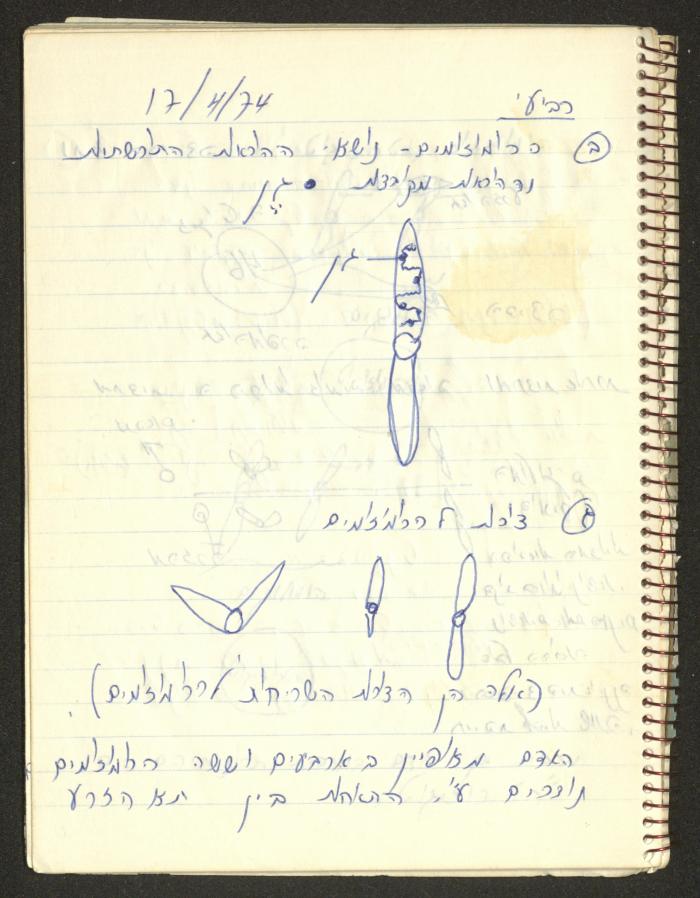 רביעי 17/4/74
(ב) כרומוזומים - נושאי ההוראות התורשתיות
גן • הוראות מקובצות
גן
(ג) צורות הכרומוזומים
(אלה הן הצורות השכיחות לכרומוזומים).
האדם מאופיין בארבעים וששה כרומוזומים
נוצרים ע"י ההתאחות בין תא הזרע